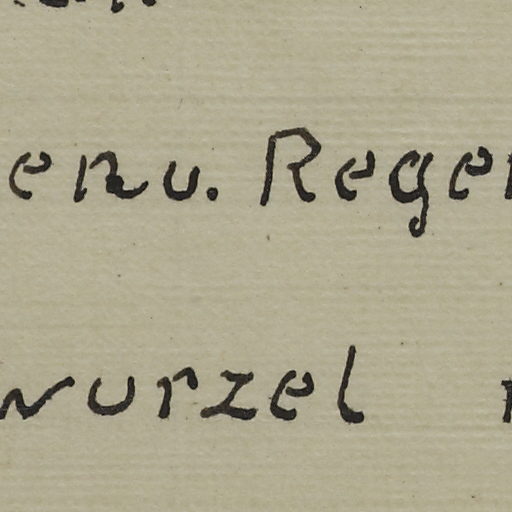 en u. Rege
wurzel